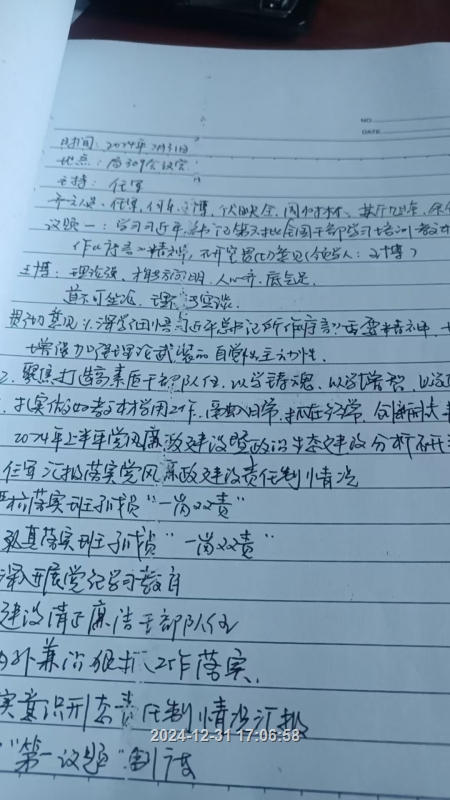 NO.
DATE
时间: 2024年7月31日
地点: 局309会议室
主持: 任军
议题一: 学习习近平总书记为第六批全国干部学习培训教材
作的序言》精神, 研究贯彻意见(领学人: 王博)
王博: 理论强、才能方向明、人心齐、底气足。
贯彻意见 1. 深学细悟习近平总书记所作序言》重要精神,
增强加强理论武装的自觉性主动性。
2. 聚焦打造高素质干部队伍, 以学铸魂、以学增智、以学
扎实做好教材学用工作, 融入日常、抓在经常,
2024年上半年党风廉政建设暨政治生态建设分析研
任军汇报落实党风廉政建设责任制情况
严格落实班子成员"一岗双责"
认真落实班子成员"一岗双责"
深入开展党纪学习教育
建设清正廉洁干部队伍
内外兼治狠抓工作落实
实意识形态责任制情况汇报
"第一议题"制度
2024-12-31 17:06:58